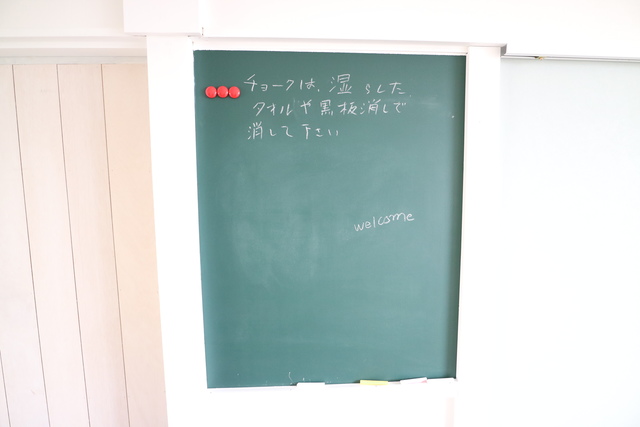 チョークは、湿らした
タオルや黒板消しで
消して下さい
welcome